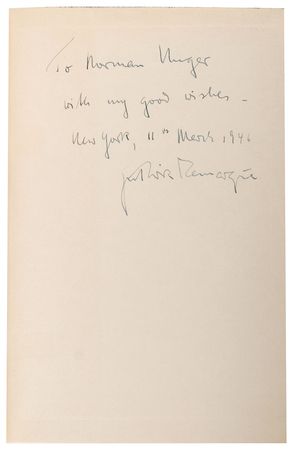 To Norman Unger
with my good wishes -
New York, 11th March 1946
Erich Maria Remarque